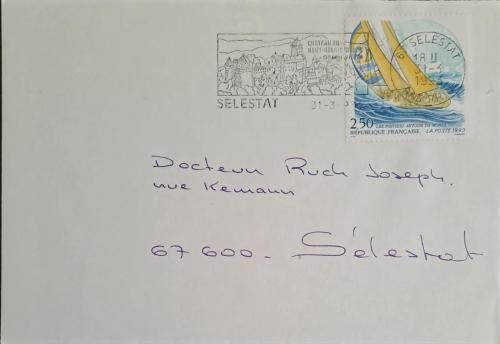 CHATEAU DU
HAUT-KŒNIGSBOURG
SELESTAT
31-3
SELESTAT
18 H
31-3
2,50
LES POSTIERS AUTOUR DU MONDE
RÉPUBLIQUE FRANÇAISE LA POSTE 1993
Docteur Ruch Joseph.
rue Kemann
67600 - Sélestat